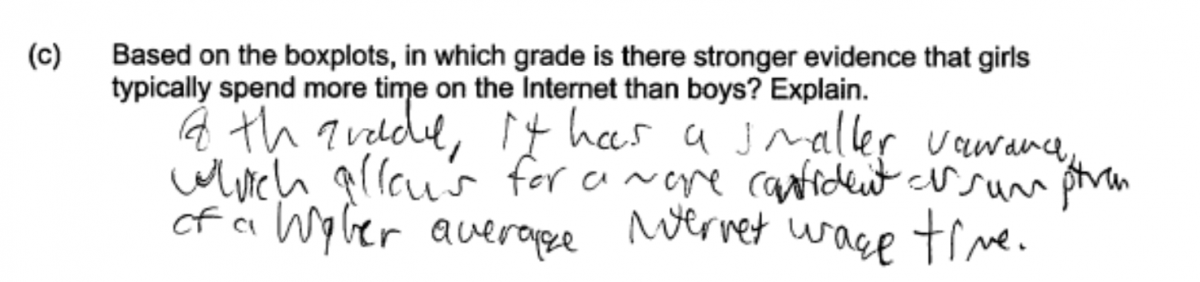 (c) Based on the boxplots, in which grade is there stronger evidence that girls
typically spend more time on the Internet than boys? Explain.
8 th grade, it has a smaller variance,
which allows for a more confident assumption
of a higher average internet usage time.